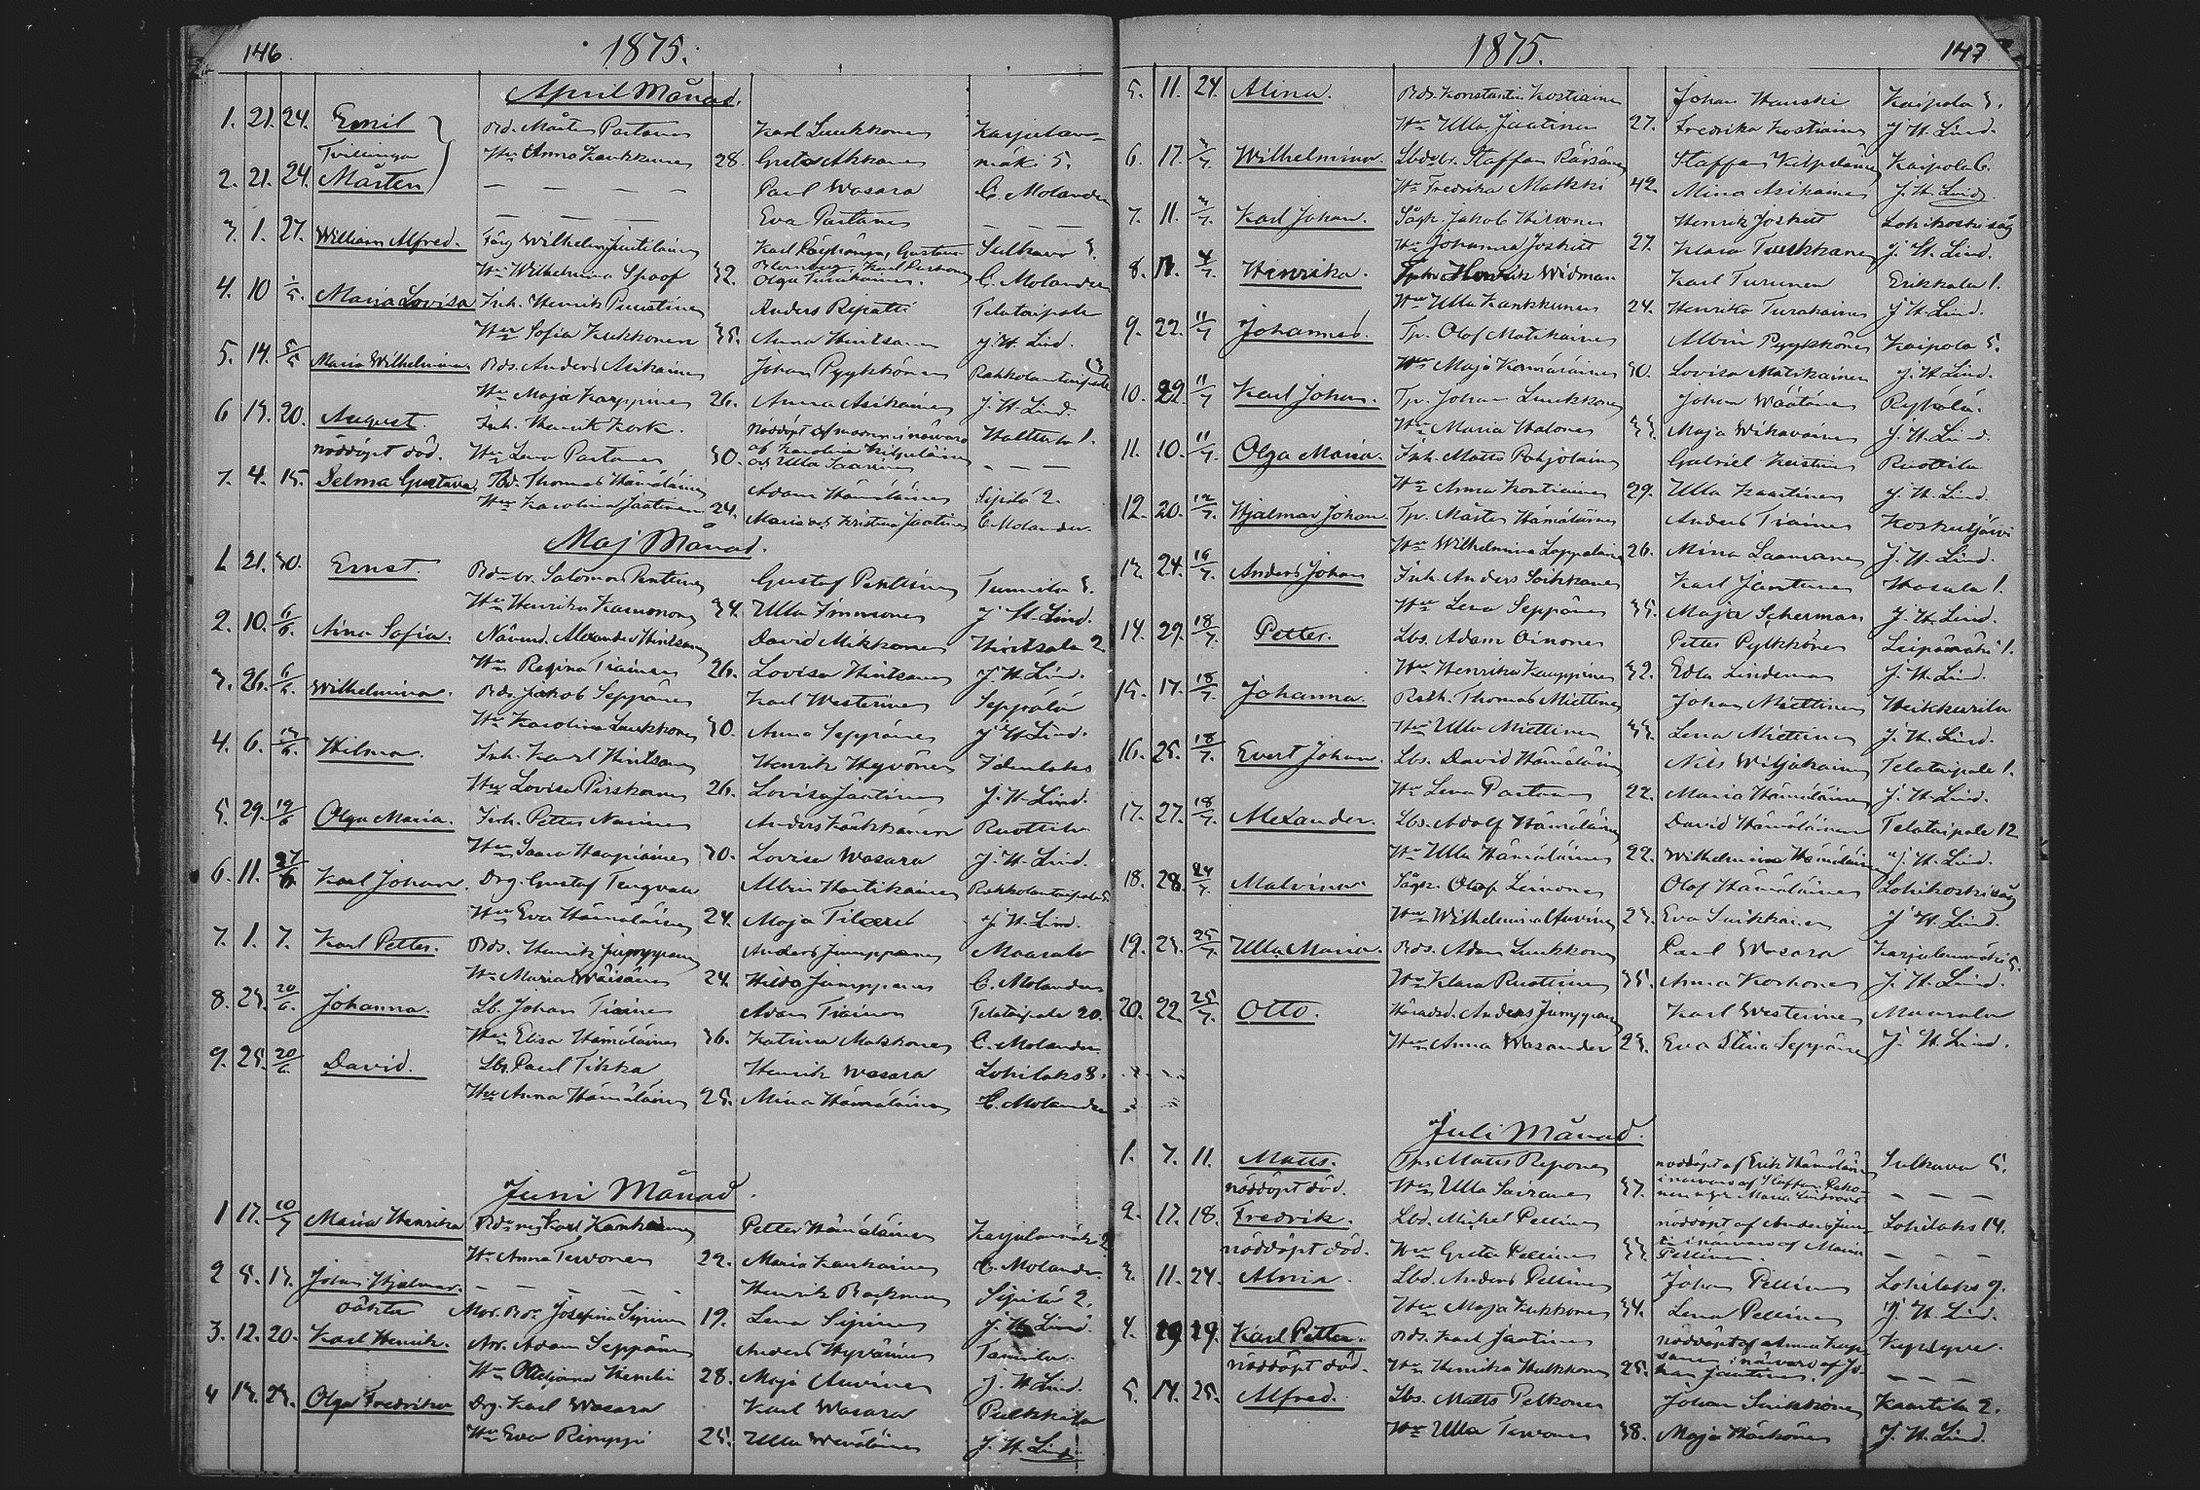 146 1875.
April Månad.
1. 21. 24. Emil Bd. Mårten Partanen Karl Luukkonen Karjulan-
Tvillingar Hu Anna Kaukkunen 28. Gusta Akkanen mäki 5.
2. 21. 24. Mårten — — — — Paul Wasara C. Molander
— — — Eva Partanen — — —
3. 1. 27. William Alfred. Färg Wilhelm Juutilainen Karl Gustav Sulkava
Hu Wilhelmina Spoof 32. Olga Turakainen. C. Molander
4. 10 1/5. Maria Lovisa Inh. Henrik Puustinen Anders Repatti Telataipale
Hu Sofia Kukkonen 35. Anna Hintsanen J. H. Lind.
5. 14. 5/5 Maria Wilhelmina. Bds. Anders Asikainen Johan Pyykkönen Rakkolantaipale
Hu Maja Karppinen 26. Anna Asikainen J. H. Lind.
6 15. 20. August. Inh. Henrik Kork. Nöddöpt af modren i närvaro Halttula 1.
nöddöpt död. Hu Lena Partanen 30. af Karolina Kilpeläinen och Ulla Saarinen — — —
7. 4. 15. Selma Gustava. Bd. Thomas Hämäläinen Adam Hämäläinen Sipilä 2.
Hu Karolina Jaatinen 24. Maria och Kristina Jaatinen C. Molander.
Maj Månad.
1. 21. 30. Ernst. Bdebr. Salomon Pentinen Gustaf Pentinen Tunnila
Hu Henrika Kammonen 34. Ulla Immonen J. H. Lind.
2. 10. 6/6. Aina Sofia. Nämnd. Alexander Hintsanen David Mikkonen Hintsala 2
Hu Regina Tiainen 26. Lovisa Hintsanen J. H. Lind.
3. 26. 6/6. Wilhelmina. Bds. Jakob Seppänen Karl Westerinen Seppälä
Hu Karolina Luukkonen 30. Anna Seppänen J. H. Lind.
4. 6. 13/6. Hilma. Inh. Karl Hintsanen Henrik Hyvönen Idenlaks
Hu Lovisa Pirskanen 26. Lovisa Jaatinen J. H. Lind.
5. 29. 19/6 Olga Maria. Inh. Petter Narinen Anders Ruottila
Hu Saara Haapiainen 30. Lovisa Wasara J. H. Lind.
6. 11. 27/6 Karl Johan. Drg. Gustaf Tengvall Albin Hartikainen Rakkolantaipale
Hu Eva Hämäläinen 24. Maja Tilaeus J. H. Lind.
7. 1. 7. Karl Petter. Bds. Henrik Jumppanen Anders Jumppanen Maarala
Hu Maria Wäisänen 24. Hilda Jumppanen C. Molander
8. 23. 20/6. Johanna. Lb. Johan Tiainen Adam Tiainen Telataipale 20.
Hu Elisa Hämäläinen 36. Katrina Makkonen C. Molander.
9. 25. 20/6. David. Lbs. Paul Tikka Henrik Wasara Lohilaks 8.
Hu Anna Hämäläinen 25. Mina Hämäläinen C. Molander
Juni Månad.
1 17. 10/7 Maria Henrika Karl Karhinen Petter Hämäläinen Karjulanmäki 2
Hu Anna Tervonen 22. Maria Karhinen C. Molander.
2 5. 13. Johan Hjalmar. — — Henrik Backman Sipilä 2.
oäkta Mor. Bdr. Josefina Sipinen 19. Lena Sipinen J. H. Lind.
3. 12. 20. Karl Henrik. Arr. Adam Seppänen Anders Hyvärinen Tammila.
Hu Ottiljana Heneli 28. Maja Auvinen J. H. Lind.
4 13. 23. Olga Fredrika Drg. Karl Wasara Karl Wasara Pulkkala
Hu Eva Rimppi 25. Ulla Weväläinen J. H. Lind.
1875. 147
5. 11. 24. Alina. Bds. Konstantin Kostiainen Johan Hanski Kaipola 5.
Hu Ulla Jaatinen 27. Fredrika Kostiainen J. H. Lind.
6. 17. Wilhelmina. Lbdsbr. Staffan Räisänen Staffan Kilpeläinen Kaipola 6.
Hu Fredrika Malkki 42. Mina Asikainen J. H. Lind.
7. 11. 4/7. Karl Johan. Sågk. Jakob Hirvonen Henrik Joskitt Lohikoski såg
Hu Johanna Joskitt 27. Klara Tuukkanen J. H. Lind.
8. 11. 4/7. Henrika. Tpbr. Henrik Widman Karl Turunen Erikkala 1.
Hu Ulla Kankkunen 24. Henrika Turakainen J. H. Lind.
9. 22. 11/7 Johannes. Tp. Olof Matikainen Albin Pyykkönen Kaipola 5.
Hu Maja Kämäräinen 30. Lovisa Matikainen J. H. Lind.
10. 22. 11/7 Karl Johan. Tp. Johan Luukkonen Johan Wäätänen Ryhälä.
Hu Maria Halonen 33. Maja Wihavainen J. H. Lind.
11. 10. 11/7. Olga Maria. Inh. Matts Pohjolainen Gabriel Keistinen Ruottila
Hu Anna Kontiainen 29. Ulla Kaartinen J. H. Lind.
12. 20. 12/7. Hjalmar Johan. Tp. Mårten Hämäläinen Anders Tiainen Koskutjärvi
Hu Wilhelmina Loppalainen 26. Mina Laamanen J. H. Lind.
13. 24. 16/7. Anders Johan Inh. Anders Soikkanen Karl Jantunen Wasala 1.
Hu Lena Seppänen 35. Maja Scherman J. H. Lind.
14. 29. 18/7. Petter. Lbs. Adam Oinonen Petter Pylkkönen Leipämäki 1.
Hu Henrika Kauppinen 32. Edla Lindeman J. H. Lind.
15. 17. 18/7. Johanna. Rsth. Thomas Miettinen Johan Miettinen Heikkurila
Hu Ulla Miettinen 33. Lena Miettinen J. H. Lind.
16. 25. 18/7. Evert Johan. Lbs. David Hämäläinen Nils Wiljakainen Telataipale 1.
Hu Lena Partanen 22. Maria Hämäläinen J. H. Lind.
17. 27. 18/7. Alexander. Lbs. Adolf Hämäläinen David Hämäläinen Telataipale 12
Hu Ulla Hämäläinen 22. Wilhelmina Hämäläinen J. H. Lind.
18. 28. 24/7. Malvina. Sågk. Olof Leinonen Olof Hämäläinen Lohikoski såg
Hu Wilhelmina Auvinen 23. Eva Suikkanen J. H. Lind.
19. 23. 25/7 Ulla Maria. Bds. Adam Luukkonen Paul Wasara Karjulanmäki 5.
Hu Klara Ruottinen 35. Anna Korhonen J. H. Lind.
20. 22. 25/7. Otto. Häradsd. Anders Jumppanen Karl Westerinen Maarala
Hu Anna Wasander 23. Eva Stina Seppänen J. H. Lind.
Juli Månad.
1. 7. 11. Matts. Tp. Matts Reponen nöddöpt af Erik Hämäläinen Sulkava 5.
nöddöpt död. Hu Ulla Sairanen 37. i närvaro af Staffan — — —
2. 17. 18. Fredrik. Lbd. Michel Pellinen nöddöpt af Anders Lohilaks 14.
nöddöpt död. Hu Greta Pellinen 33. i närvaro af Maria Pellinen. — — —
3. 11. 24. Alma. Lbd. Anders Pellinen Johan Pellinen Lohilaks 9.
Hu Maja Kukkonen 34. Lena Pellinen J. H. Lind.
4. 19. 19. Karl Petter. Bds. Karl Jaatinen nöddöpt af Anna Kupsyve.
nöddöpt död. Hu Henrika Hulkkonen 25. i närvaro af Johan Jaatinen. — — —
5. 14. 25. Alfred. Lbs. Matts Pelkonen Johan Suikkonen Kaartila 2.
Hu Ulla Tervonen 38. Maja Härkönen J. H. Lind.